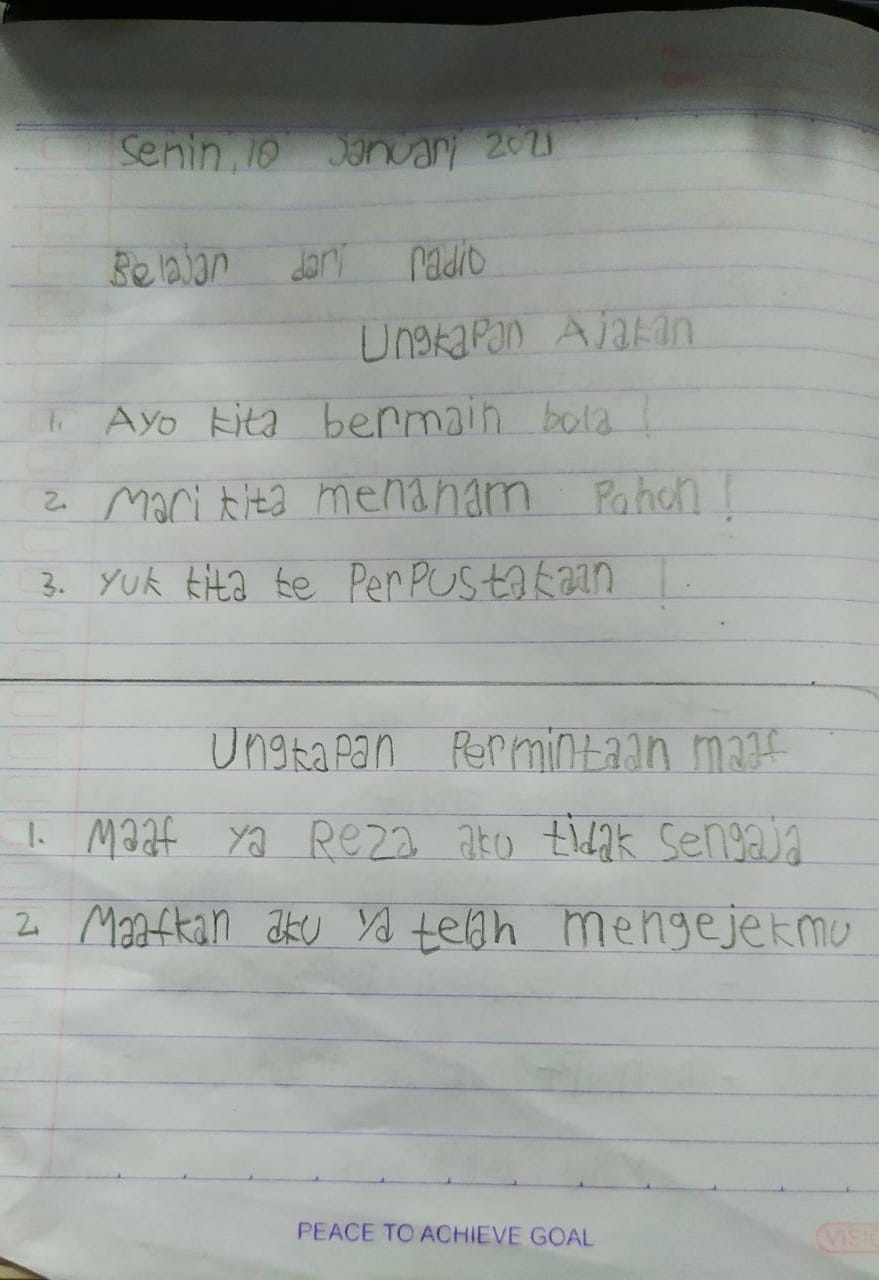 Senin, 18 Januari 2021
Belajar dari radio
Ungkapan Ajakan
1. Ayo kita bermain bola !
2. Mari kita menanam Pohon !
3. Yuk kita ke Perpustakaan !
Ungkapan Permintaan maaf
1. Maaf ya Reza aku tidak sengaja
2. Maafkan aku ya telah mengejekmu
PEACE TO ACHIEVE GOAL